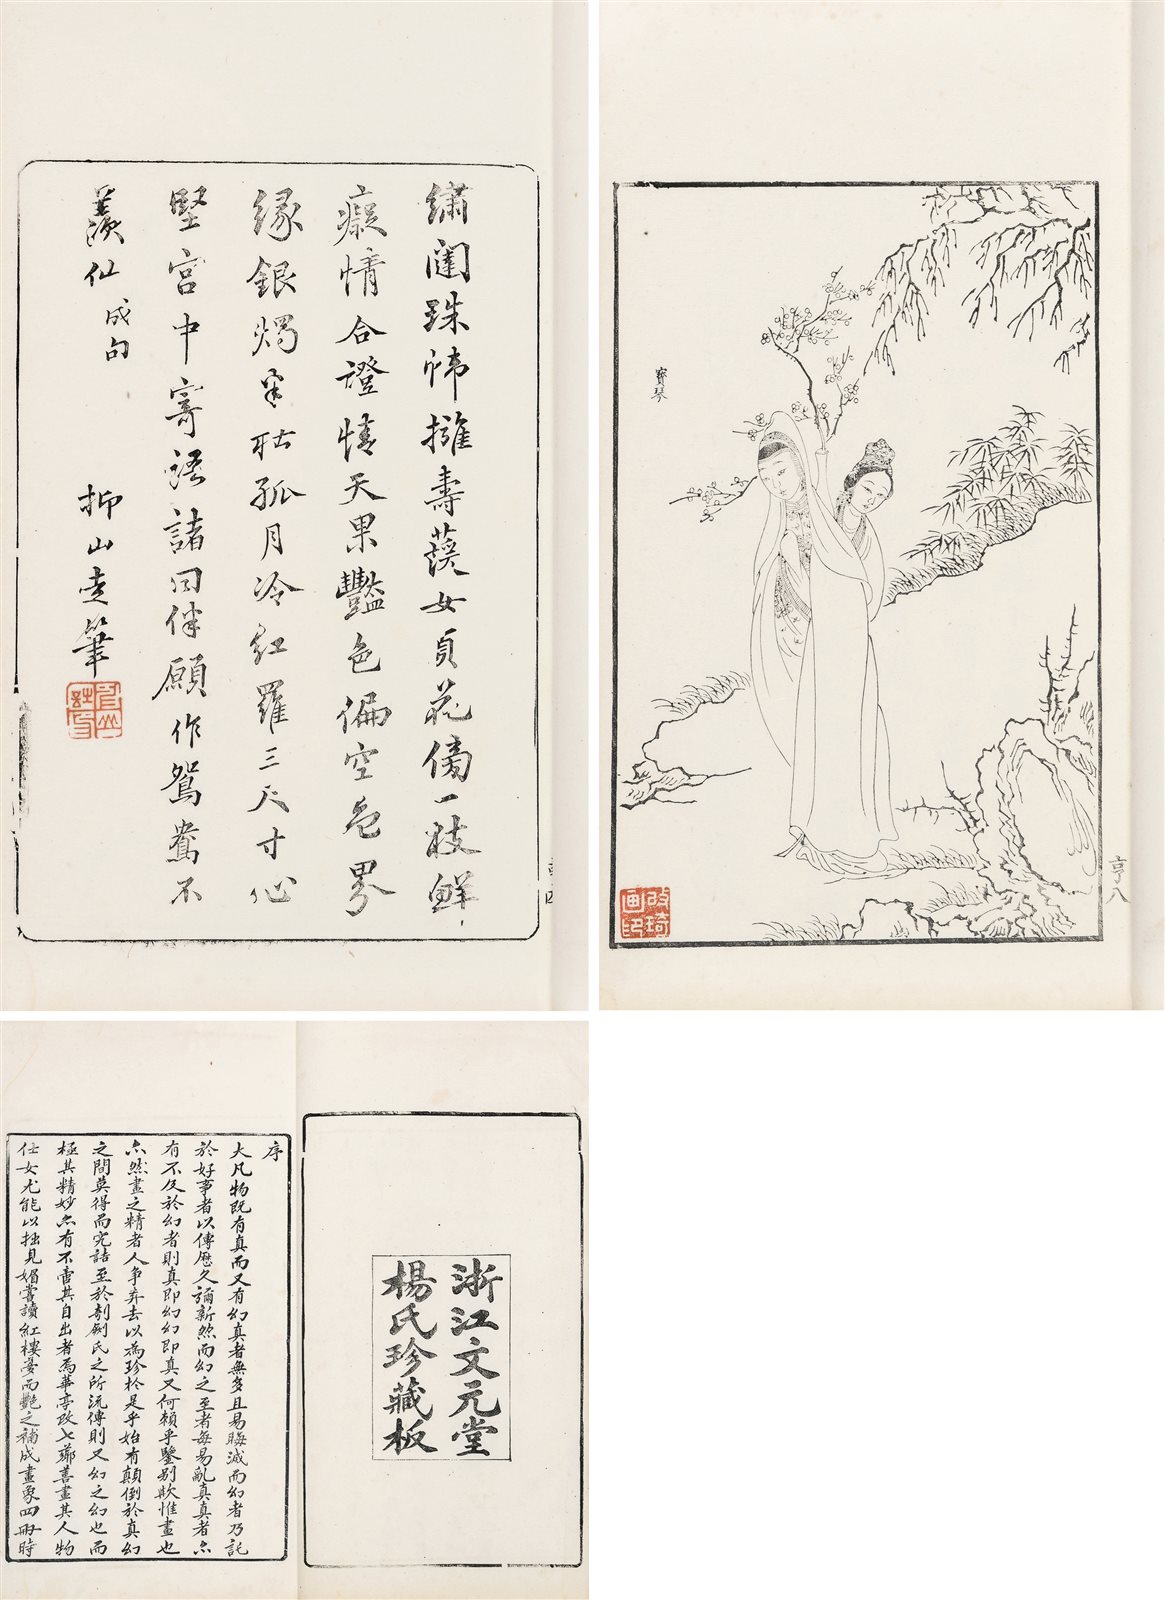 繡闥珠幃擁壽萲女貞花傍一枝鮮
癡情合證情天果豔色偏空色界
緣銀燭宵砧孤月冷紅羅三尺寸心
堅宮中寄語諸同伴願作鴛鴦不
羨仙 成句
柳山走筆
寶琴
亨八
改琦
画印
浙江文元堂
楊氏珍藏板
序
大凡物既有真而又有幻真者無多且易晦滅而幻者乃託
於好事者以傳歷久彌新然而幻之至者每易亂真真者亦
有不及於幻者則真即幻幻即真又何賴乎鑒别歟惟畫也
亦然畫之精者人争弆去以為珍於是乎始有顛倒於真幻
之間莫得而究詰至於剞劂氏之所流傳則又幻之幻也而
極其精妙亦有不啻其自出者焉華亭改七薌善畫其人物
仕女尤能以拙見媚嘗讀紅樓夢而艷之補成畫象四冊時